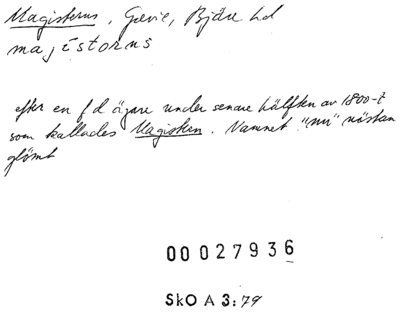 Magisterns, Grevie, Bjäre hd
majəstərns
efter en f d ägare under senare hälften av 1800-t
som kallades Magistern. Namnet "nu" nästan
glömt
00027936
SkO A 3:79